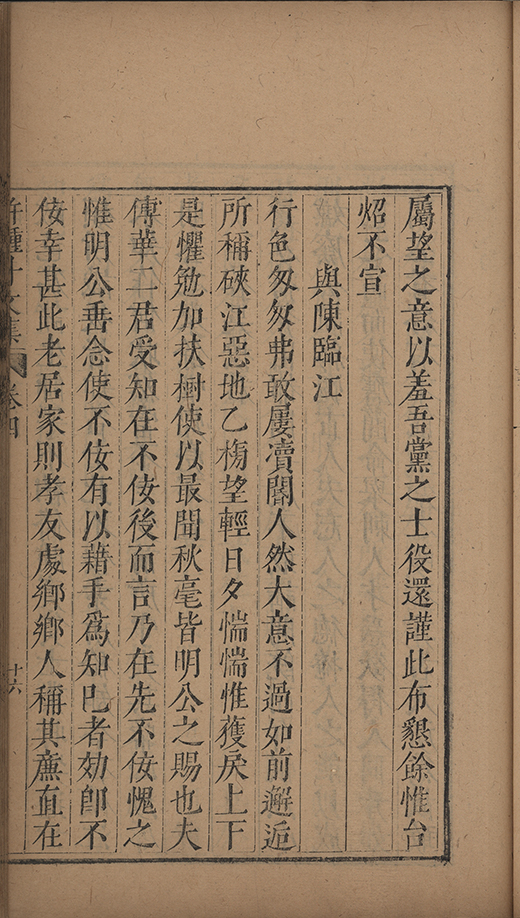 屬望之意以羞吾黨之士役還謹此布懇餘惟台
炤不宣
與陳臨江
行色匆匆弗敢屢凟閽人然大意不過如前邂逅
所稱硤江惡地乙榜望輕日夕惴惴惟獲戾上下
是懼勉加扶樹使以最聞秋毫皆明公之賜也夫
傅華二君受知在不佞後而言乃在先不佞愧之
惟明公垂念使不佞有以藉手爲知巳者効卽不
佞幸甚此老居家則孝友處鄉鄉人稱其廉直在
許鍾斗文集 卷四 十六